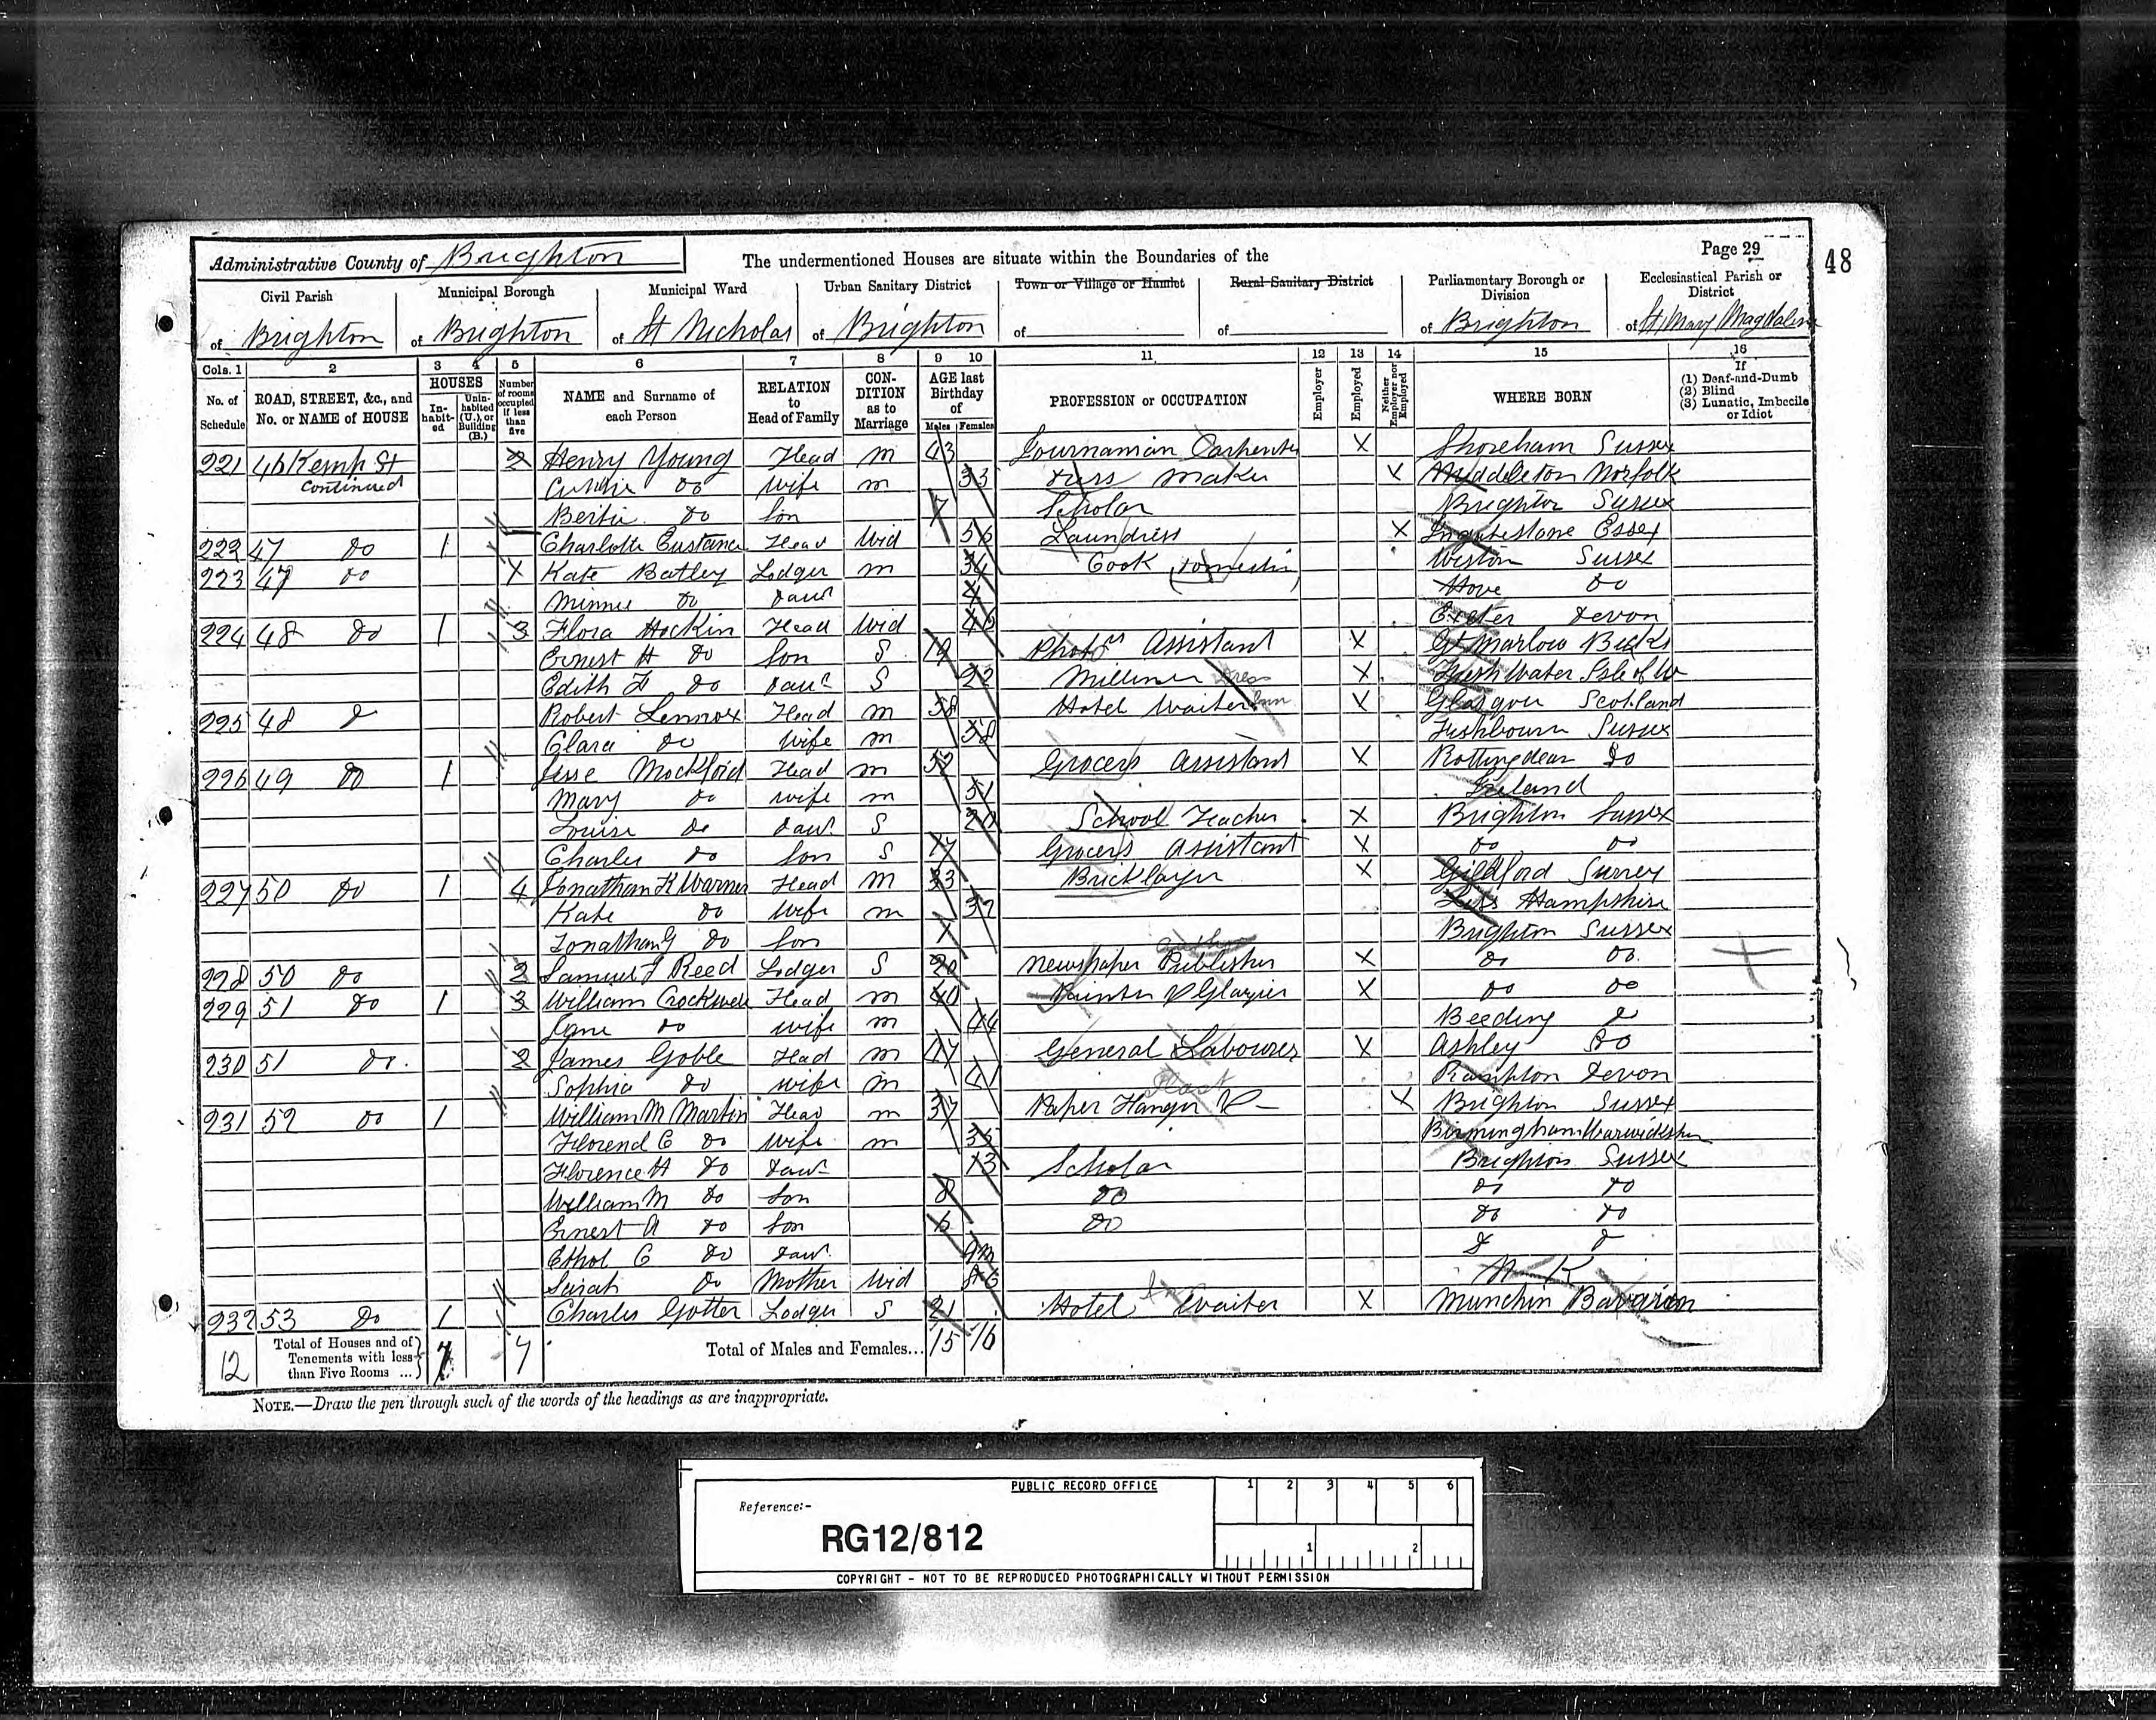 Page 29
48
Administrative County of Brighton The undermentioned Houses are situate within the Boundaries of the
Civil Parish Municipal Borough Municipal Ward Urban Sanitary District Town or Village or Hamlet Rural Sanitary District Parliamentary Borough or Division Ecclesiastical Parish or District
of Brighton of Brighton of St Nicholas of Brighton of of of Brighton of St Mary Magdalen
Cols. 1 2 3 4 5 6 7 8 9 10 11 12 13 14 15 16
No. of Schedule ROAD, STREET, &c., and No. or NAME of HOUSE HOUSES In-habit-ed Unin-habited (U.), or Building (B.) Number of rooms occupied if less than five NAME and Surname of each Person RELATION to Head of Family CON-DITION as to Marriage AGE last Birthday of Males Females PROFESSION or OCCUPATION Employer Employed Neither Employer nor Employed WHERE BORN If (1) Deaf-and-Dumb (2) Blind (3) Lunatic, Imbecile or Idiot
221 46 Kemp St 2 Henry Young Head m 43 Journaman Carpenter X Shoreham Sussex
continued do wife m 33 Dress Maker X Middleton Norfolk
Bertie do Son 7 Scholar Brighton Sussex
222 47 do 1 Charlotte Eustance Head Wid 56 Laundress X Ingatestone Essex
223 47 do Kate Batley Lodger m 34 Cook (Domestic) Weston Sussex
Minnie do Daur 4 Hove do
224 48 do 1 3 Flora Hockin Head Wid 46 Exeter Devon
Ernest H do Son S 19 Photo Assistant X Gt Marlow Bucks
Edith F do Daur S 22 Milliner Dress X Fresh Water Isle of W
225 48 do Robert Lennox Head m 58 Hotel Waiter Inn X Glasgow Scotland
Clara do wife m 58 Fishbourn Sussex
226 49 do 1 Jesse Mockford Head m 52 Grocers Assistant X Rottingdean do
Mary do wife m 51 Ireland
Louise do Daur S 20 School Teacher X Brighton Sussex
Charles do Son S 17 Grocers Assistant X do do
227 50 do 1 4 Jonathan K Warner Head m 33 Bricklayer X Gildford Surrey
Kate do Wife m 32 Liss Hampshire
Jonathan G do Son 1 Brighton Sussex
228 50 do 2 Samuel J Reed Lodger S 20 Newspaper Publisher X do do
229 51 do 1 3 William Crockwell Head m 40 Painter & Glazier X do do
Jane do wife m 44 Beeding do
230 51 do. 2 James Goble Head m 47 General Labourer X Ashley do
Sophia do wife m 41 Rampton Devon
231 52 do 1 William M Martin Head m 37 Paper Hanger & X Brighton Sussex
Florend E do Wife m 35 Birmingham Warwickshire
Florence H do Daur 13 Scholar Brighton Sussex
William M do Son 8 do do do
Ernest A do Son 6 do do do
Ethol C do Daur 9m do do
Sarah do Mother Wid N K
232 53 do 1 Charles Gotter Lodger S 21 Hotel Waiter X Munchin Bavarian
12 Total of Houses and of Tenements with less than Five Rooms ... 7 7 Total of Males and Females... 15 16
NOTE.—Draw the pen through such of the words of the headings as are inappropriate.
PUBLIC RECORD OFFICE
1 2 3 4 5 6
Reference:-
RG12/812
1 2
COPYRIGHT - NOT TO BE REPRODUCED PHOTOGRAPHICALLY WITHOUT PERMISSION